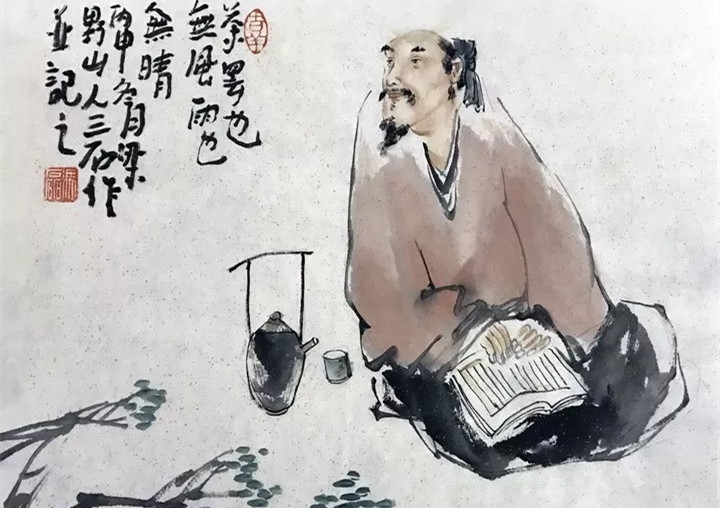 茶罢也
無風雨也
無晴
丙申冬月梁
野山人三石作
並記之
吉羊